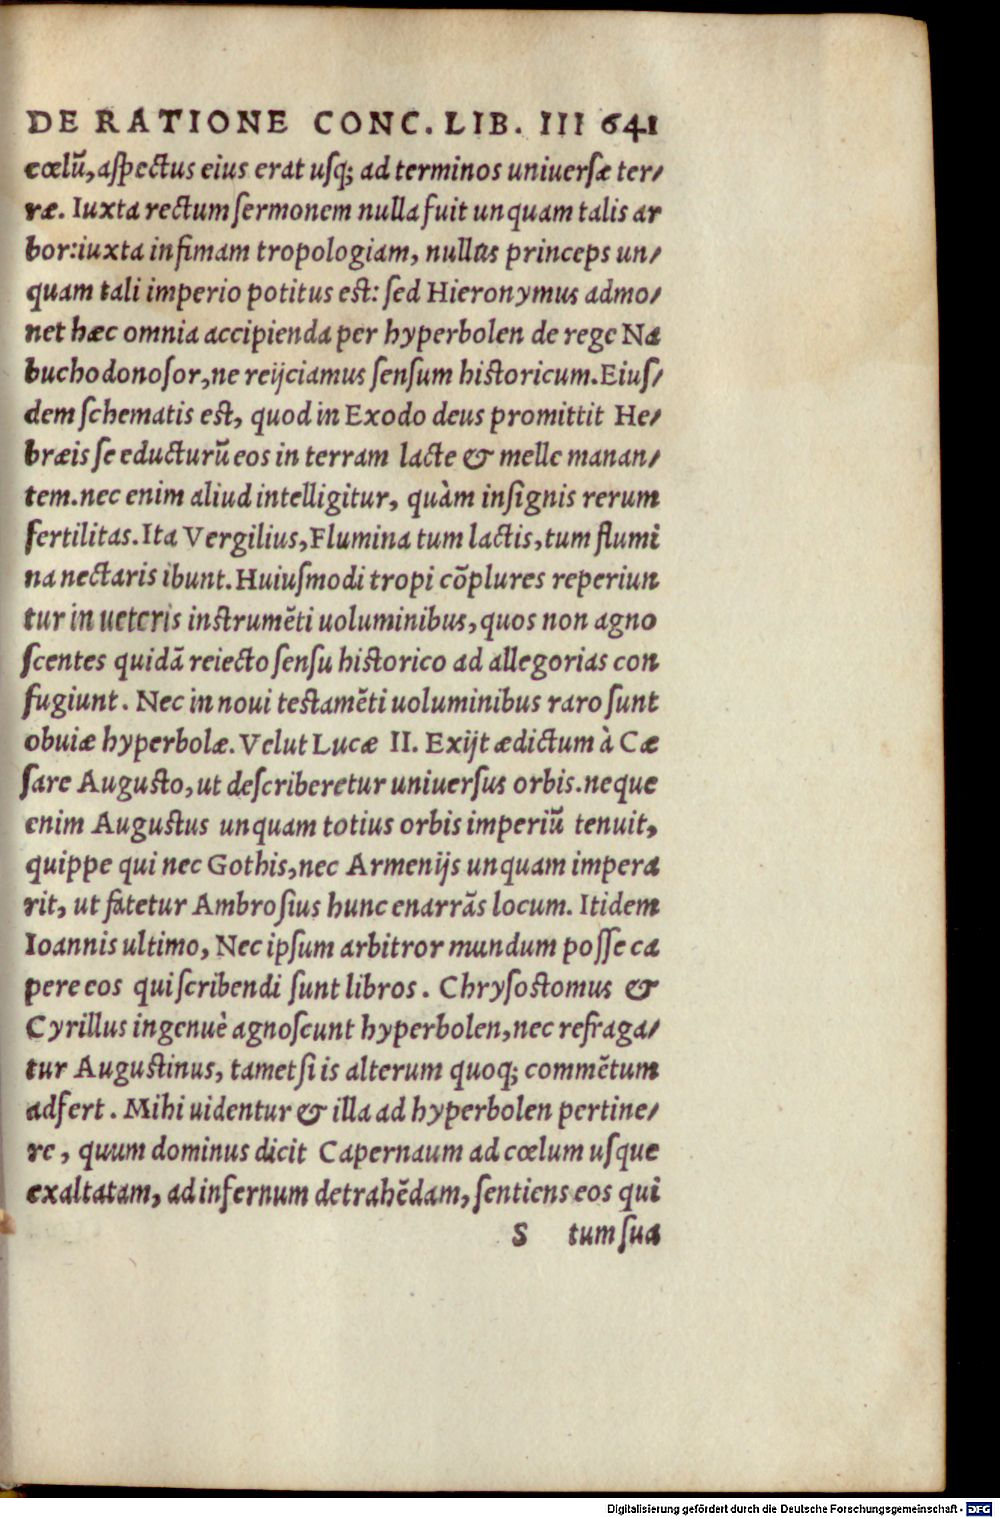 DE RATIONE CONC. LIB. III 641
cœlũ, aſpectus eius erat uſq; ad terminos uniuerſæ ter/
ræ. Iuxta rectum ſermonem nulla fuit unquam talis ar
bor: iuxta infimam tropologiam, nullus princeps un/
quam tali imperio potitus eſt: ſed Hieronymus admo/
net hæc omnia accipienda per hyperbolen de rege Na
buchodonoſor, ne reijciamus ſenſum hiſtoricum. Eiuſ/
dem ſchematis eſt, quod in Exodo deus promittit He/
bræis ſe educturũ eos in terram lacte & melle manan/
tem. nec enim aliud intelligitur, quàm inſignis rerum
fertilitas. Ita Vergilius, Flumina tum lactis, tum flumi
na nectaris ibunt. Huiuſmodi tropi cõplures reperiun
tur in ueteris inſtrumẽti uoluminibus, quos non agno
ſcentes quidã reiecto ſenſu hiſtorico ad allegorias con
fugiunt. Nec in noui teſtamẽti uoluminibus raro ſunt
obuiæ hyperbolæ. Velut Lucæ II. Exijt ædictum à Cæ
ſare Auguſto, ut deſcriberetur uniuerſus orbis. neque
enim Auguſtus unquam totius orbis imperiũ tenuit,
quippe qui nec Gothis, nec Armenijs unquam impera
rit, ut fatetur Ambroſius hunc enarrãs locum. Itidem
Ioannis ultimo, Nec ipſum arbitror mundum poſſe ca
pere eos qui ſcribendi ſunt libros. Chryſoſtomus &
Cyrillus ingenuè agnoſcunt hyperbolen, nec refraga/
tur Auguſtinus, tametſi is alterum quoq; commẽtum
adfert. Mihi uidentur & illa ad hyperbolen pertine/
re, quum dominus dicit Capernaum ad cœlum uſque
exaltatam, ad infernum detrahẽdam, ſentiens eos qui
S tum ſua
Digitalisierung gefördert durch die Deutsche Forschungsgemeinschaft - DFG